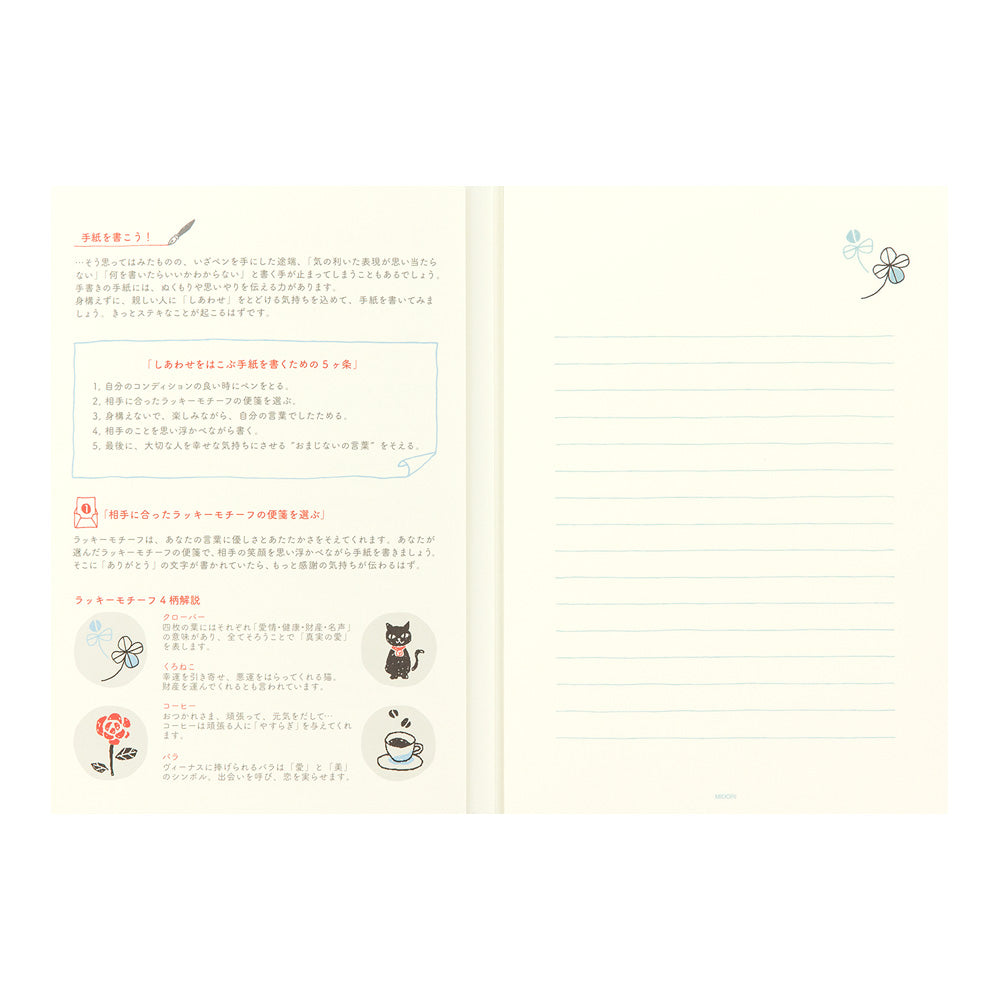 手紙を書こう！
…そう思ってはみたものの、いざペンを手にした途端、「気の利いた表現が思い当たら
ない」「何を書いたらいいかわからない」と書く手が止まってしまうこともあるでしょう。
手書きの手紙には、ぬくもりや思いやりを伝える力があります。
身構えずに、親しい人に「しあわせ」をとどける気持ちを込めて、手紙を書いてみま
しょう。きっとステキなことが起こるはずです。
「しあわせをはこぶ手紙を書くための5ヶ条」
1, 自分のコンディションの良い時にペンをとる。
2, 相手に合ったラッキーモチーフの便箋を選ぶ。
3, 身構えないで、楽しみながら、自分の言葉でしたためる。
4, 相手のことを思い浮かべながら書く。
5, 最後に、大切な人を幸せな気持ちにさせる“おまじないの言葉”をそえる。
1「相手に合ったラッキーモチーフの便箋を選ぶ」
ラッキーモチーフは、あなたの言葉に優しさとあたたかさをそえてくれます。あなたが
選んだラッキーモチーフの便箋で、相手の笑顔を思い浮かべながら手紙を書きましょう。
そこに「ありがとう」の文字が書かれていたら、もっと感謝の気持ちが伝わるはず。
ラッキーモチーフ4柄解説
クローバー
四枚の葉にはそれぞれ「愛情・健康・財産・名声」
の意味があり、全てそろうことで「真実の愛」
を表します。
くろねこ
幸運を引き寄せ、悪運をはらってくれる猫。
財産を運んでくれるとも言われています。
コーヒー
おつかれさま、頑張って、元気をだして…
コーヒーは頑張る人に「やすらぎ」を与えてくれ
ます。
バラ
ヴィーナスに捧げられるバラは「愛」と「美」
のシンボル、出会いを呼び、恋を実らせます。
MIDORI